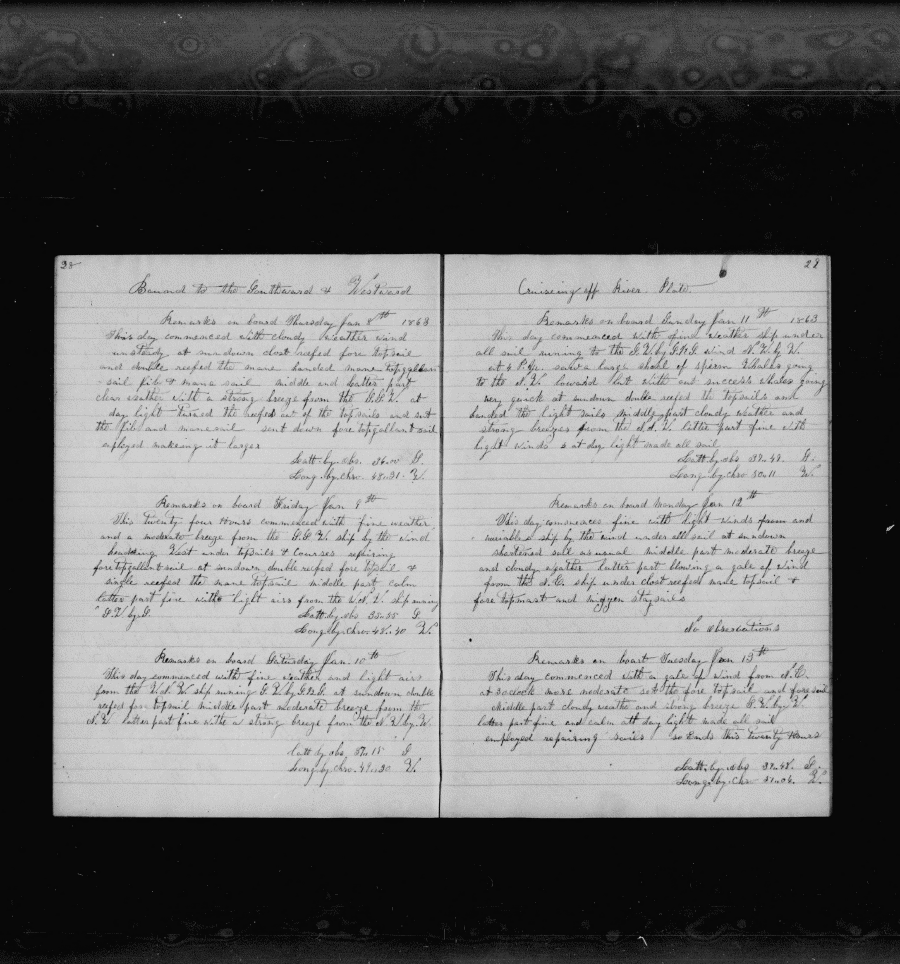 28
Bound to the Southward & Westward
Remarks on board Thursday Jan 8th 1863
This day commenced with cloudy weather wind
unsteady at sundown clost reefed fore topsail
and double reefed the mane handed mane topgallant
sail jib & mana sail middle and latter part
clear weather with a strong breeze from the S.S.W. at
day light turned the reefes out of the topsails and set
the jib and mane sail sent down fore topgallant sail
employed makeing it larger
Latt. by. obs. 36-00 S.
Long. by. Chro. 48-31 W.
Remarks on board Friday Jan 9th
This twenty four Hours commenced with fine weather
and a moderate breeze from the S.S.W. ship by the wind
heading West under topsails & Courses repairing
fore topgallant sail at sundown double reefed fore topsail &
single reefed the mane topsail middle part calm
latter part fine with light airs from the W.N.W. ship runing
S.W. by. S. Latt. by. obs 35-55 S
Long. by. Chro. 48-40 W.
Remarks on board Saturday Jan. 10th
This day commenced with fine weather and light airs
from the W.N.W. ship runing S.W. by S.½.S. at sundown double
reefed fore topsail middle part moderate breeze from the
N.W. latter part fine with a strong breeze from the N.W. by. W.
Latt by. obs. 37-18 S
Long. by. Chro. 49-30 W.
28
Cruiseing off River Plate
Remarks on board Sunday Jan 11th 1863
This day commenced with good weather ship under
all sail runing to the S.W. by S.½.S wind N.W. by W.
at 4 P.M. saw a large shoal of sperm Whales going
to the N.W. lowered but with out success whales going
very quick at sundown double reefed the topsails and
handed the light sails middle part cloudy weather and
strong breezes from the N.W. latter part fine with
light winds at day light made all sail
Latt. by. obs 37-49. S.
Long. by chro 50-11 W
Remarks on board Monday Jan 12th
This day commences fine with light winds from and
variable ship by the wind under all sail at sundown
shortened sail as usual middle part moderate breeze
and cloudy weather latter part blowing a gale of wind
from the N.E. ship under clost reefed mane topsail &
fore topmast and mizzen staysails
No observations
Remarks on boart Tuesday Jan 13th
This day commenced with a gale of wind from N.E.
at 3 oclock more moderate set the fore topsail and fore sail
middle part cloudy weathe and strong breeze N.W. by. W.
latter part fine and calm att day light made all sail
employed repairing so Ends this twenty Hours
Latt. by. obs 37-48. S.
Long. by. Chr 51-04. W.